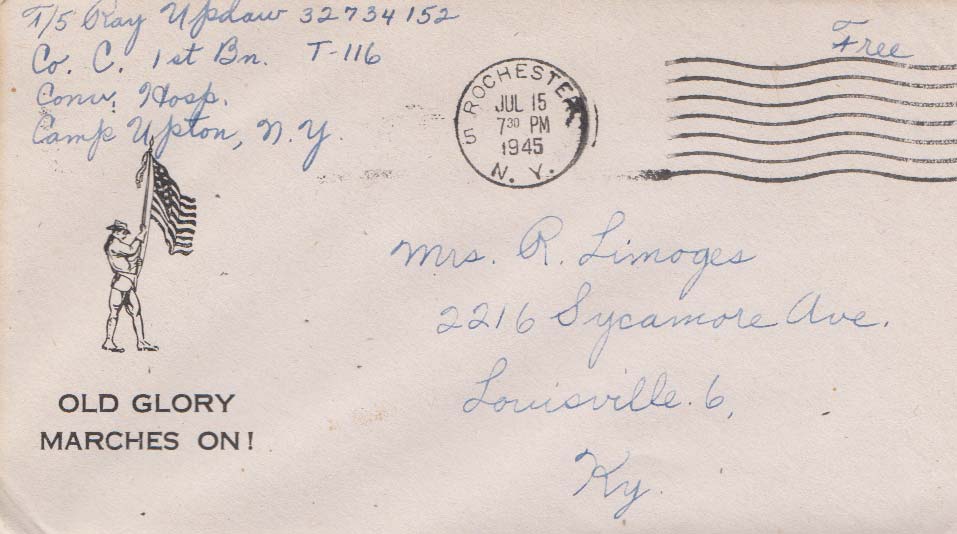 T/5 Ray Updaw 32734152
Co. C. 1st Bn. T-116
Conv. Hosp.
Camp Upton, N.Y.
Free
ROCHESTER
5
JUL 15
7 30 PM
1945
N. Y.
Mrs. R. Limoges
2216 Sycamore Ave.
Louisville 6,
Ky.
OLD GLORY
MARCHES ON!